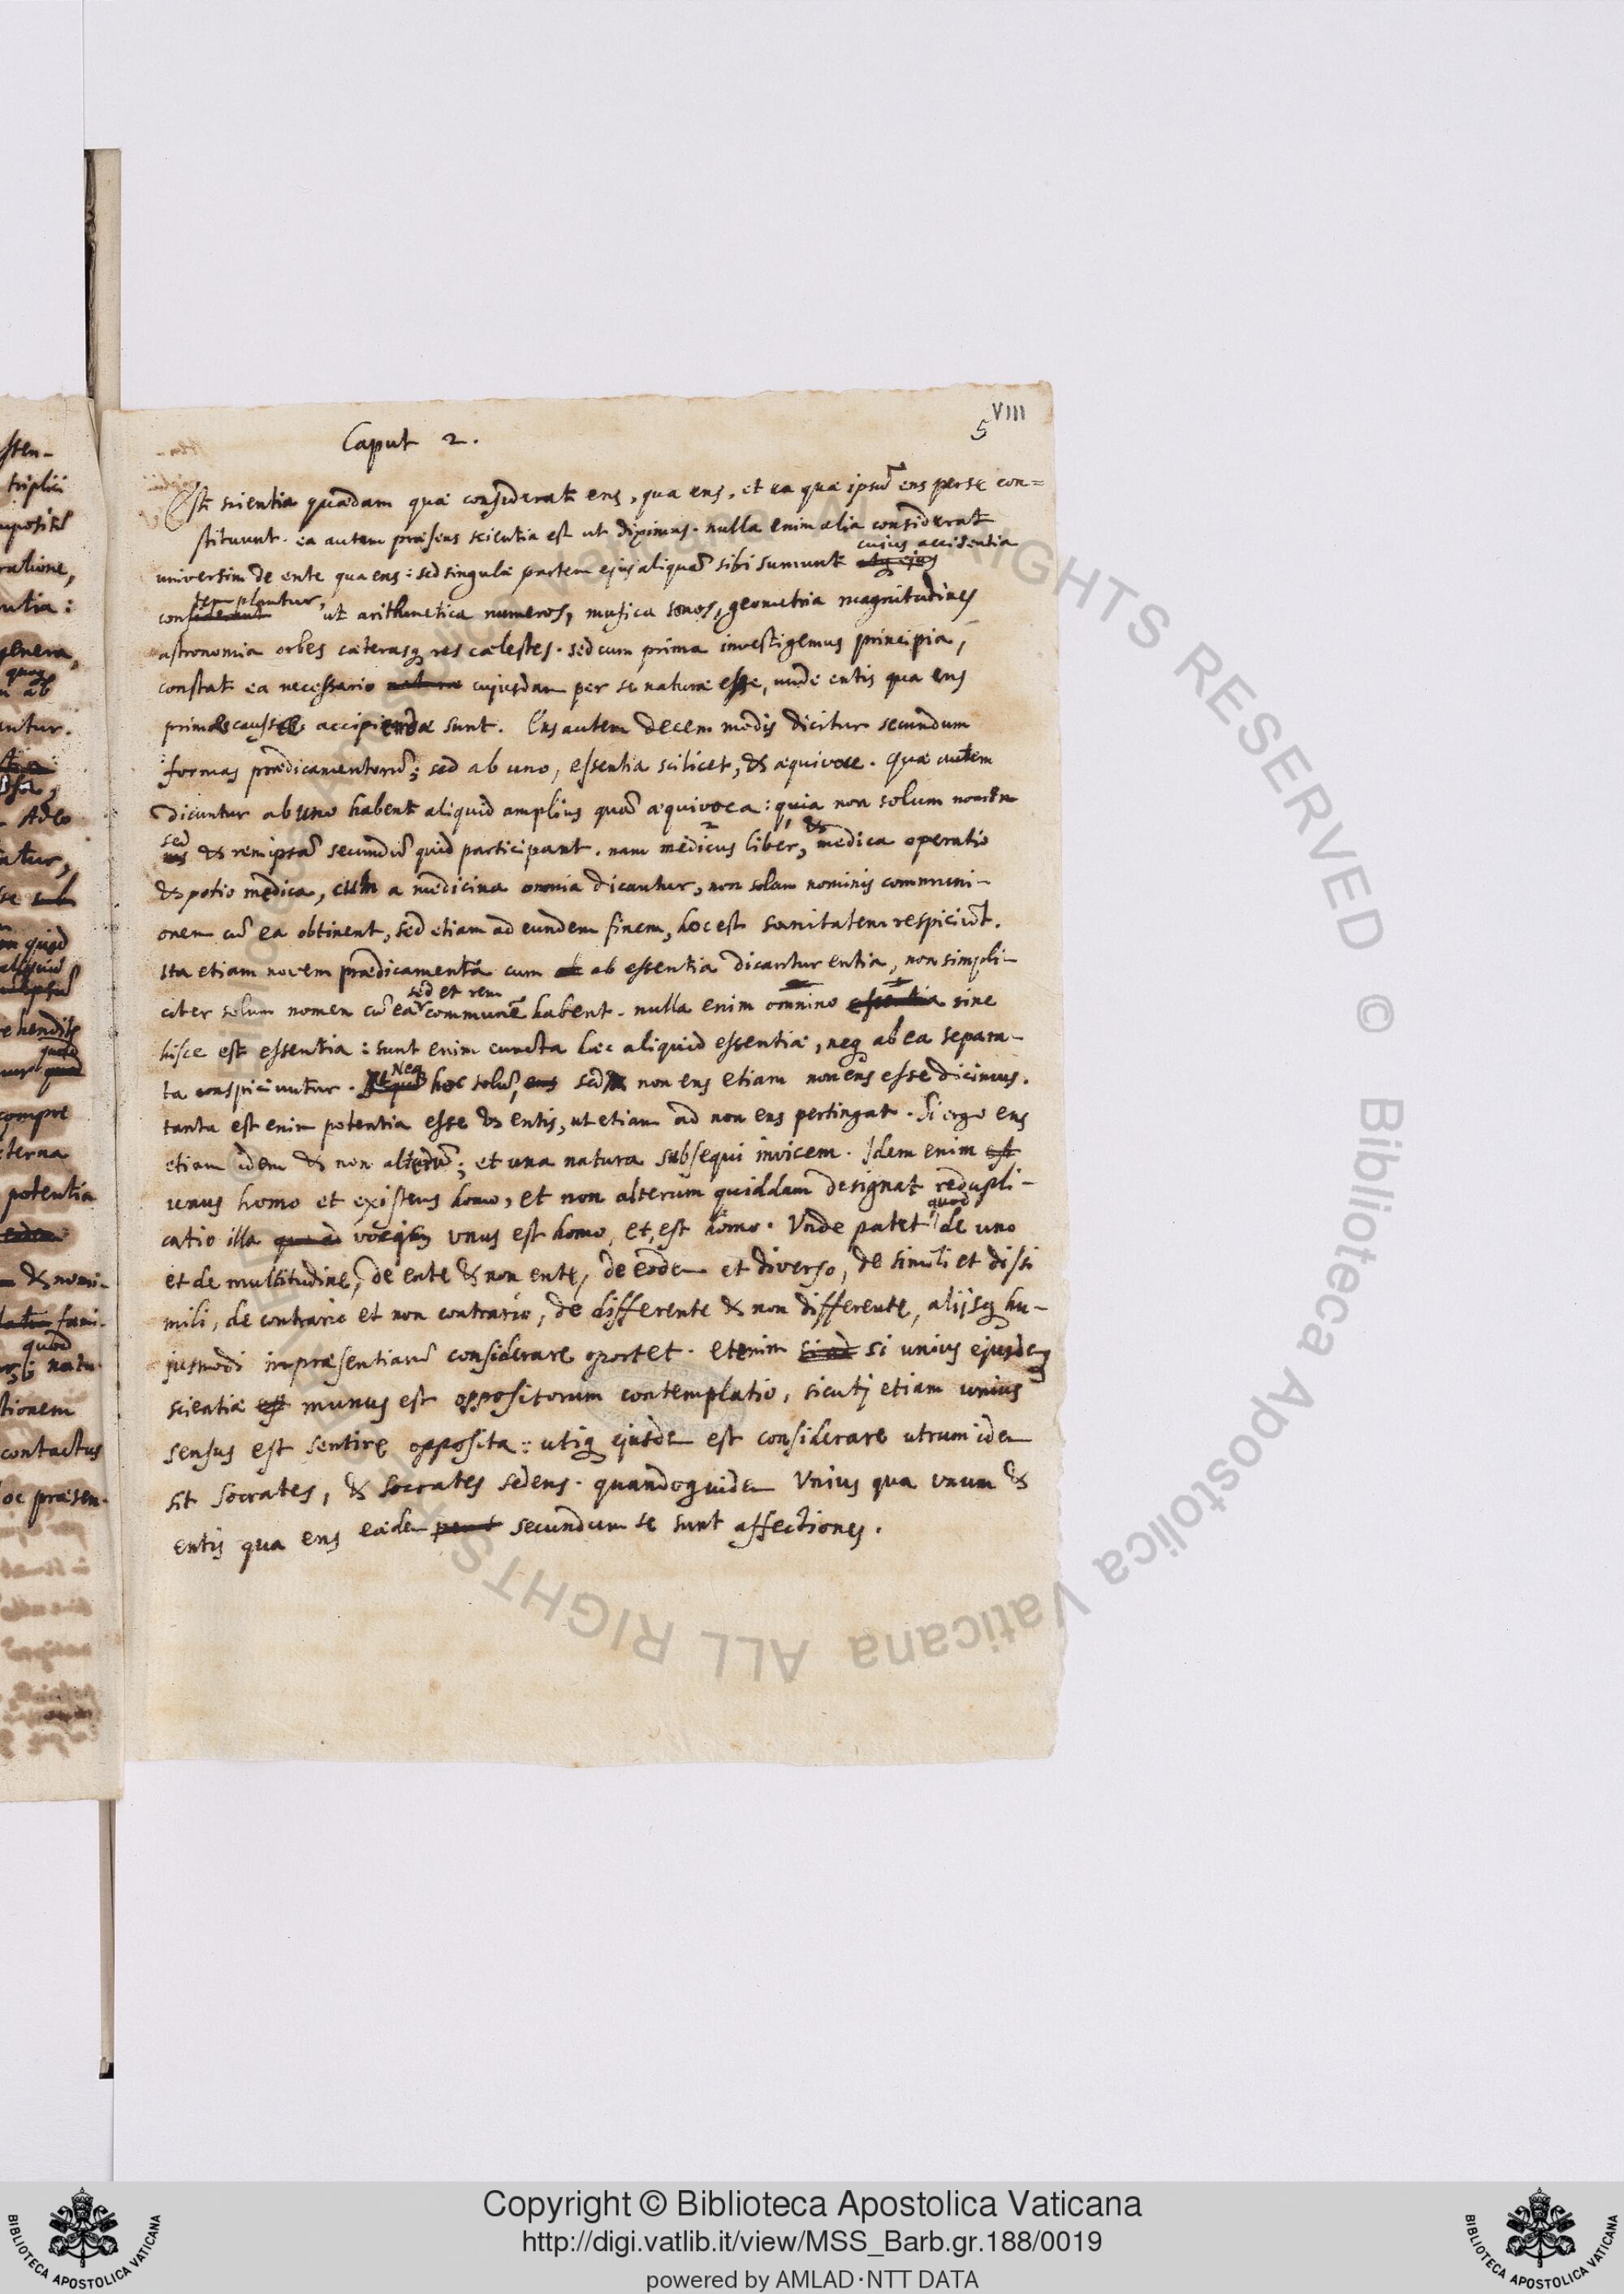 VIII
5
Caput 2.
Est scientia quædam quæ considerat ens, qua ens, et ea quæ ipsũ ens per se con=
stituunt. ea autem præsens scientia est ut diximus. nulla enim alia considerat
cuius accidentia
universim de ente qua ens: sed singulæ partem ejus aliquã sibi sumunt atq ejus
templantur,
considerant ut arithmetica numeros, musica sonos, geometria magnitudines
astronomia orbes cæterasq res cælestes. sed cum prima investigemus principia,
constat ea necessario naturæ cujusdam per se naturæ esse, unde entis qua ens
primæ caussæ accipiendæ sunt. Ens autem decem modis dicitur secundum
formas prædicamentorũ; sed ab uno, essentia scilicet, & æquivoce. Quæ autem
dicuntur ab uno habent aliquid amplius quã æquivoca: quia non solum nomen
sed
& rem ipsã secundũ quid participant. nam medicus liber, & medica operatio
& potio medica, cum a medicina omnia dicantur, non solum nominis communi-
onem cũ ea obtinent, sed etiam ad eundem finem, hoc est sanitatem respiciũt.
Ita etiam novem prædicamenta cum ab essentia dicantur entia, non simpli-
sed et rem
citer solum nomen cũ ea communẽ habent. nulla enim omnino essentia sine
hisce est essentia: sunt enim cuncta hæc aliquid essentiæ, neq ab ea separa-
Neq
ta conspiciuntur. hoc solũ, ens sed non ens etiam non ens esse dicimus.
tanta est enim potentia esse & entis, ut etiam ad non ens pertingat. Si ergo ens
etiam idem & non alterũ; et una natura subsequi invicem. Idem enim est
unus homo et existens homo, et non alterum quiddam designat redupli-
quod
catio illa unus est homo, et, est homo. Unde patet de uno
et de multitudine, de ente & non ente, de eodem et diverso, de simili et dissi
mili, de contrario et non contrario, de differente & non differente, alijsq hu-
jusmodi in præsentiarũ considerare oportet. etenim si unius ejusdemq
scientiæ est munus est oppositorum contemplatio, sicutj etiam unius
sensus est sentire opposita: utiq ejusdẽ est considerare utrum idem
sit Socrates, & Socrates sedens. quandoquidem Unius qua unum &
entis qua ens eædem secundum se sunt affectiones.
Copyright © Biblioteca Apostolica Vaticana
http://digi.vatlib.it/view/MSS_Barb.gr.188/0019
powered by AMLAD·NTT DATA